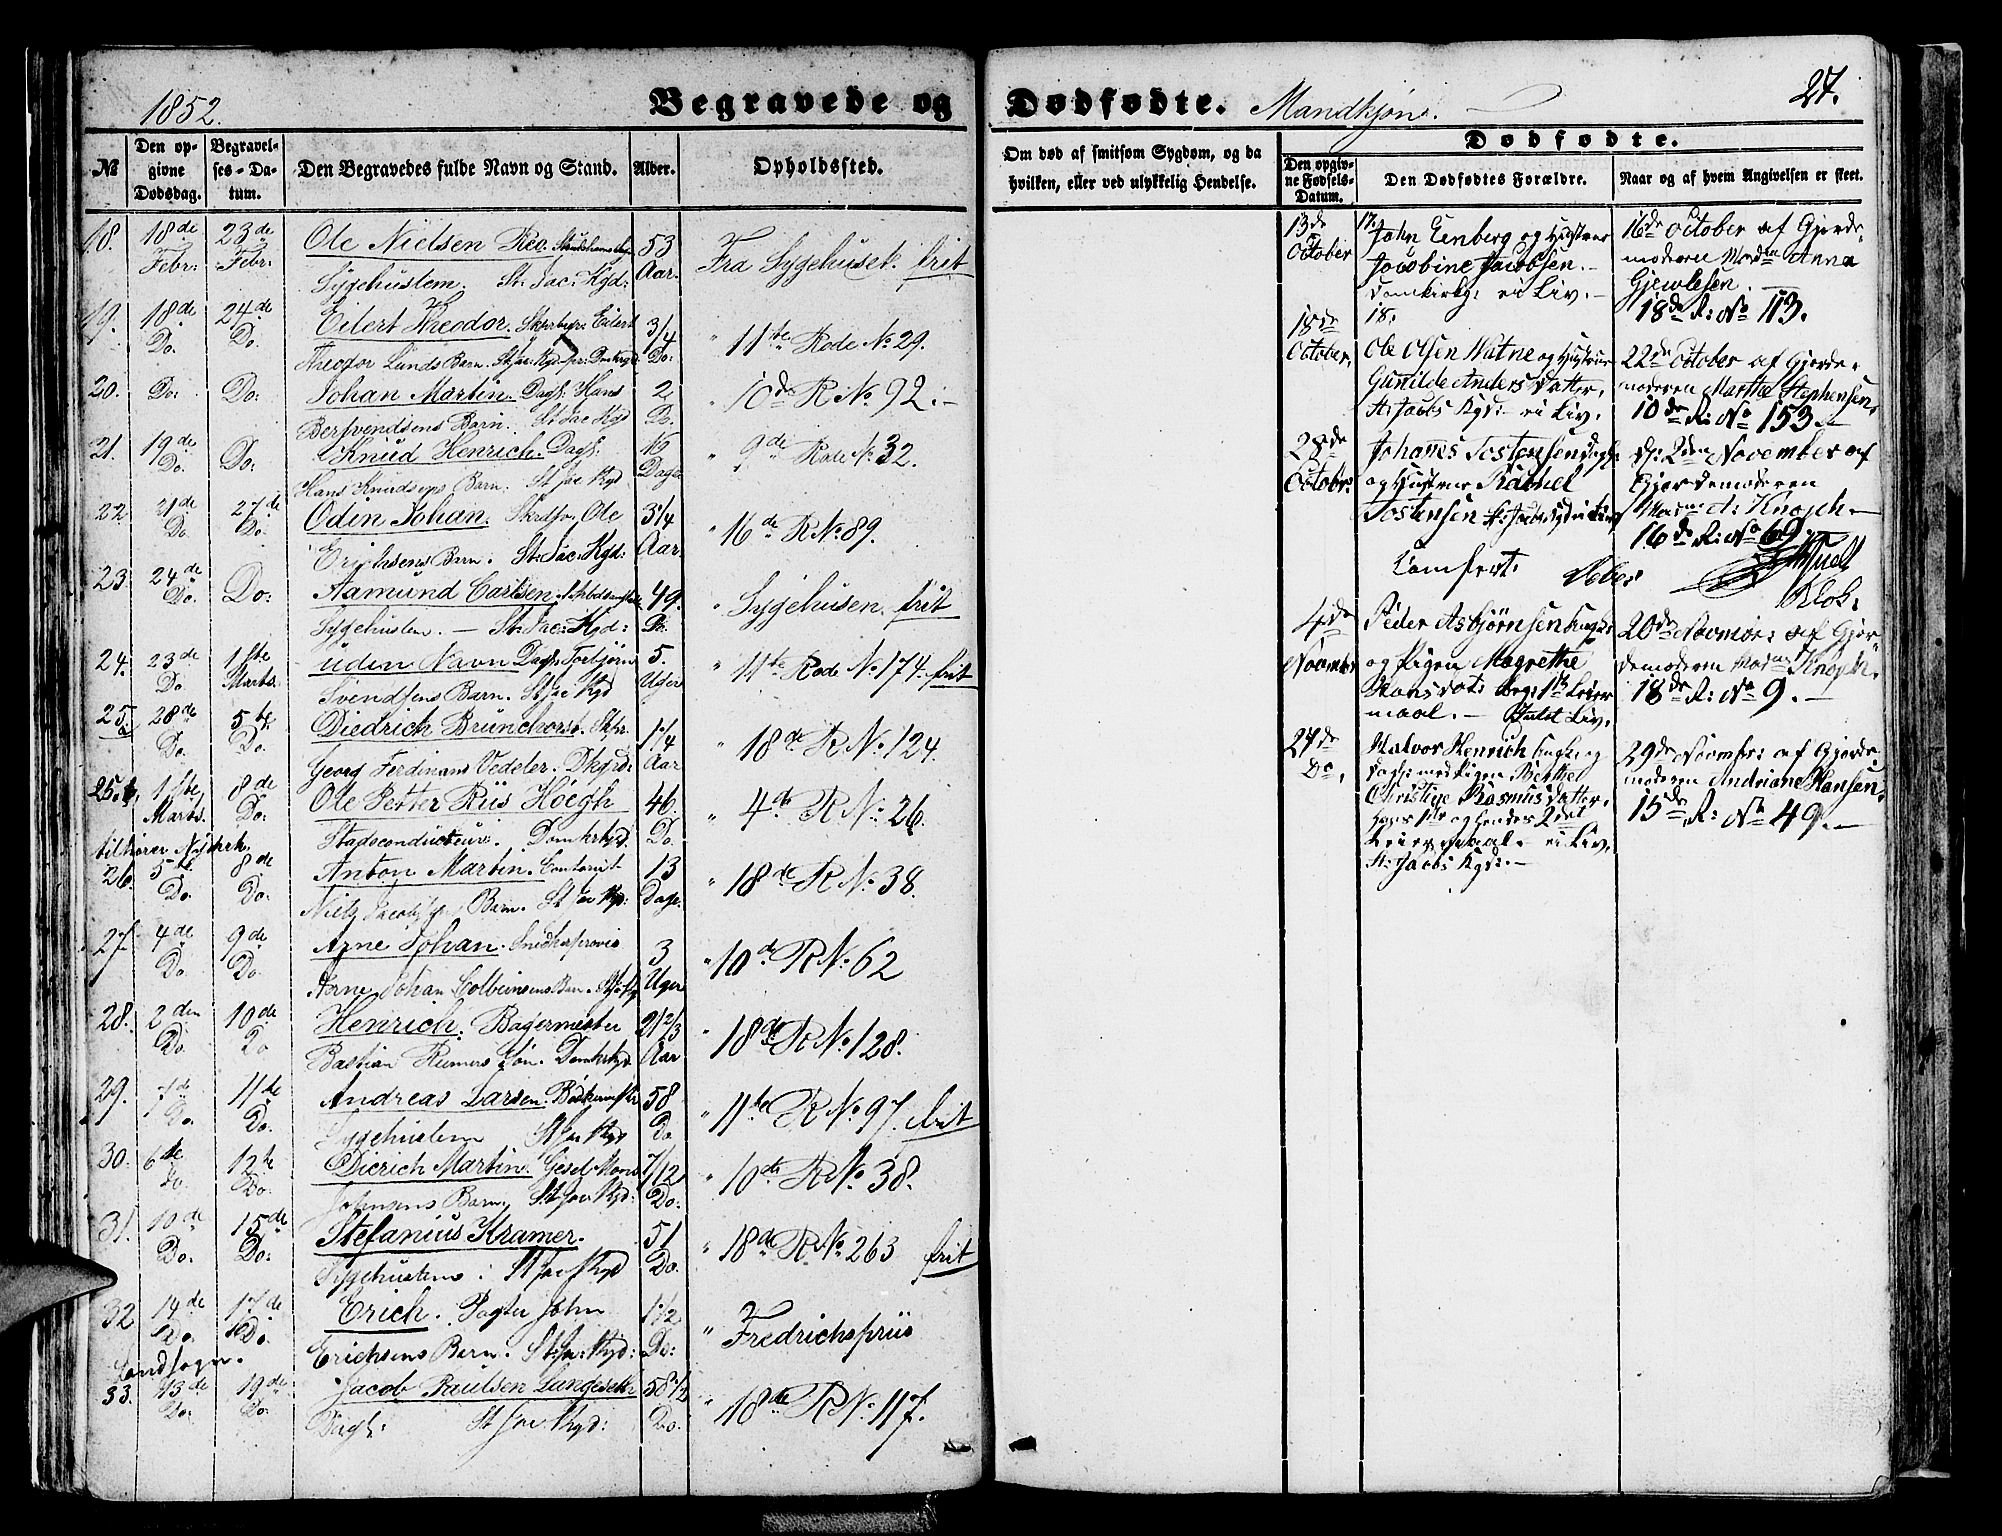 1852.
Begravede og
Dødfødte. Mandkjøn.
27.
№
Den opgivne Dødsdag.
Begravelses-Datum.
Den Begravedes fulde Navn og Stand.
Alder.
Opholdssted.
Om død af smitsom Sygdom, og da hvilken, eller ved ulykkelig Hendelse.
Dødfødte.
Den opgivne Fødsels-Datum.
Den Dødfødtes Forældre.
Naar og af hvem Angivelsen er skeet.
18. 18de 23de Ole Nielsen 53 Fra Sygehuset. frit
Febr: Febr: Sygehuslem. St: Jac: Kgd: Aar.
19. 18de 24de Eilert Theodor. Eilert 3/4 " 11te Rode No 29.
Do. Do. Theodor Lunds Barn. Do:
20. Do: Do: Johan Martin. Dagk: Hans 2 " 10de R No 92.
Bersvendsens Barn. St Jac Kgd Do.
21. 19de Do: Knud Henrich. Dagk: 16 " 9de Rode No 32.
Do. Hans Knudsens Barn. St Jac Kgd Dage
22 21de 27de Oden Johan. Ole 3 1/4 " 16de R No 89.
Do. Do: Erichsens Barn. St: Jac: Kgd: Aar.
23 24de Do: Aamund Carlsen. 49. " Sygehusen. frit
Do. Sygehuslem. — St: Jac: Kgd: Do.
24. 23de 1ste uden Navn Dagk: Torbjørn 5. " 11te Rode No 174. frit
Do. Marts. Svendsens Barn. St Jac Kgd Uger
25.a 28de 5te Diedrich Brunchorst. 1 1/4 " 18de R No 124.
Do. Do. Georg Ferdinans Vedeler. Dkgrd: Aar
25.b, 1ste 8de Ole Petter Riis Høegh 46 " 4de R No 26.
Marts. Do: Stadsconducteur. Domkrkgd. Do.
tilhører Nykirk.
26. 5te 8de Anton Martin. Contorist 13 " 18de R No 38.
Do. Do. Barn. St Jac Kgd: Dage.
27. 4de 9de Arne Johan. 3 " 10de R No 62
Do. Do. Arne Johan Colbeinsens Barn. Uger
28. 2den 10de Henrich. Bagermester 2 1/2/3 " 18de R No 128.
Do. Do Bastian Reimers Søn. Domkrkgd Aar
29. 7de 11te Andreas Larsen. 58 " 11te R No 97. frit
Do. Do. Sygehuslem St Jac Kgd Do
30. 6te 12te Dierich Martin. 7/12 " 10de R No 38.
Do. Do. Johnsens Barn, St Jac Kgd: Do:
31. 10de 15de Stefanius Kramer. 51 " 18de R No 263 frit
Do. Do: Sygehuslem: St Jac Kgd Do.
32 14de 17de Erich. Pagter John 1 1/2 " Fredrichspriis
Do. Do. Erichsens Barn. St: Jac: Kgd: Do:
Landsogn.
33. 13de 19de Jacob Paulsen Langesæt 58 1/2 " 18de R No 117.
Do. Do. Dagk: St Jac Kgd: Do.
13de October
17. John Eenberg og Hustrue
Jacobine Jacobsen. —
Domkirkg: ei Liv. —
16de October af Gjorde-
moderen Madm Anna
Gjewlesen. —
18de R: No 113.
18de October,
18.
Ole Olsen Watne og Hustrue
Gunilde Anders Datter,
St: Jacobs Kgd: — ei Liv,
22de October af Gjorde-
moderen Marthe Stephensen,
10de R: No 153. —
28de Octobr:
Johannes Tostensen Dagk:
og Hustrue Rachel
Tostensen
d: 2den November af
Gjordemoderen
Madm: A: Knoph —
16de R: No 69.
Comfert.
4de Novmbr
Peder Asbjørnsen
og Pigen Magrethe
Hansdat: beg: 1ste Leier
maal. — Liv,
20de Novmbr: af Gjor-
demoderen Madm Knoph.
18de R: No 9. —
27de Do,
Halvor Henrich og
med Pigen Berthe
Christine Rasmusdatter,
hans 1ste og hendes 2det
Leiermaal. — ei Liv,
St: Jacobs Kgd: —
29de Novmbr: af Gjorde-
moderen Andriane Hansen,
15de R: No 49. —